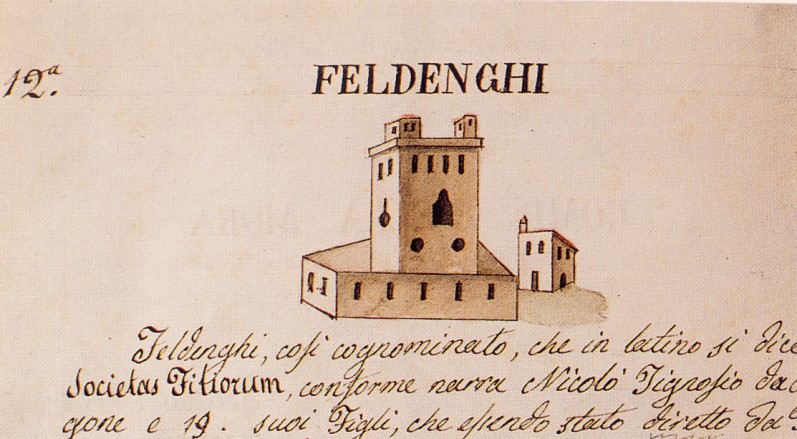 12ª.
FELDENGHI
Feldenghi, così cognominato, che in latino si dice
Societas Filiorum, conforme narra Nicolò Tignosio da
gone e 19. suoi Figli, che essendo stato diretto da